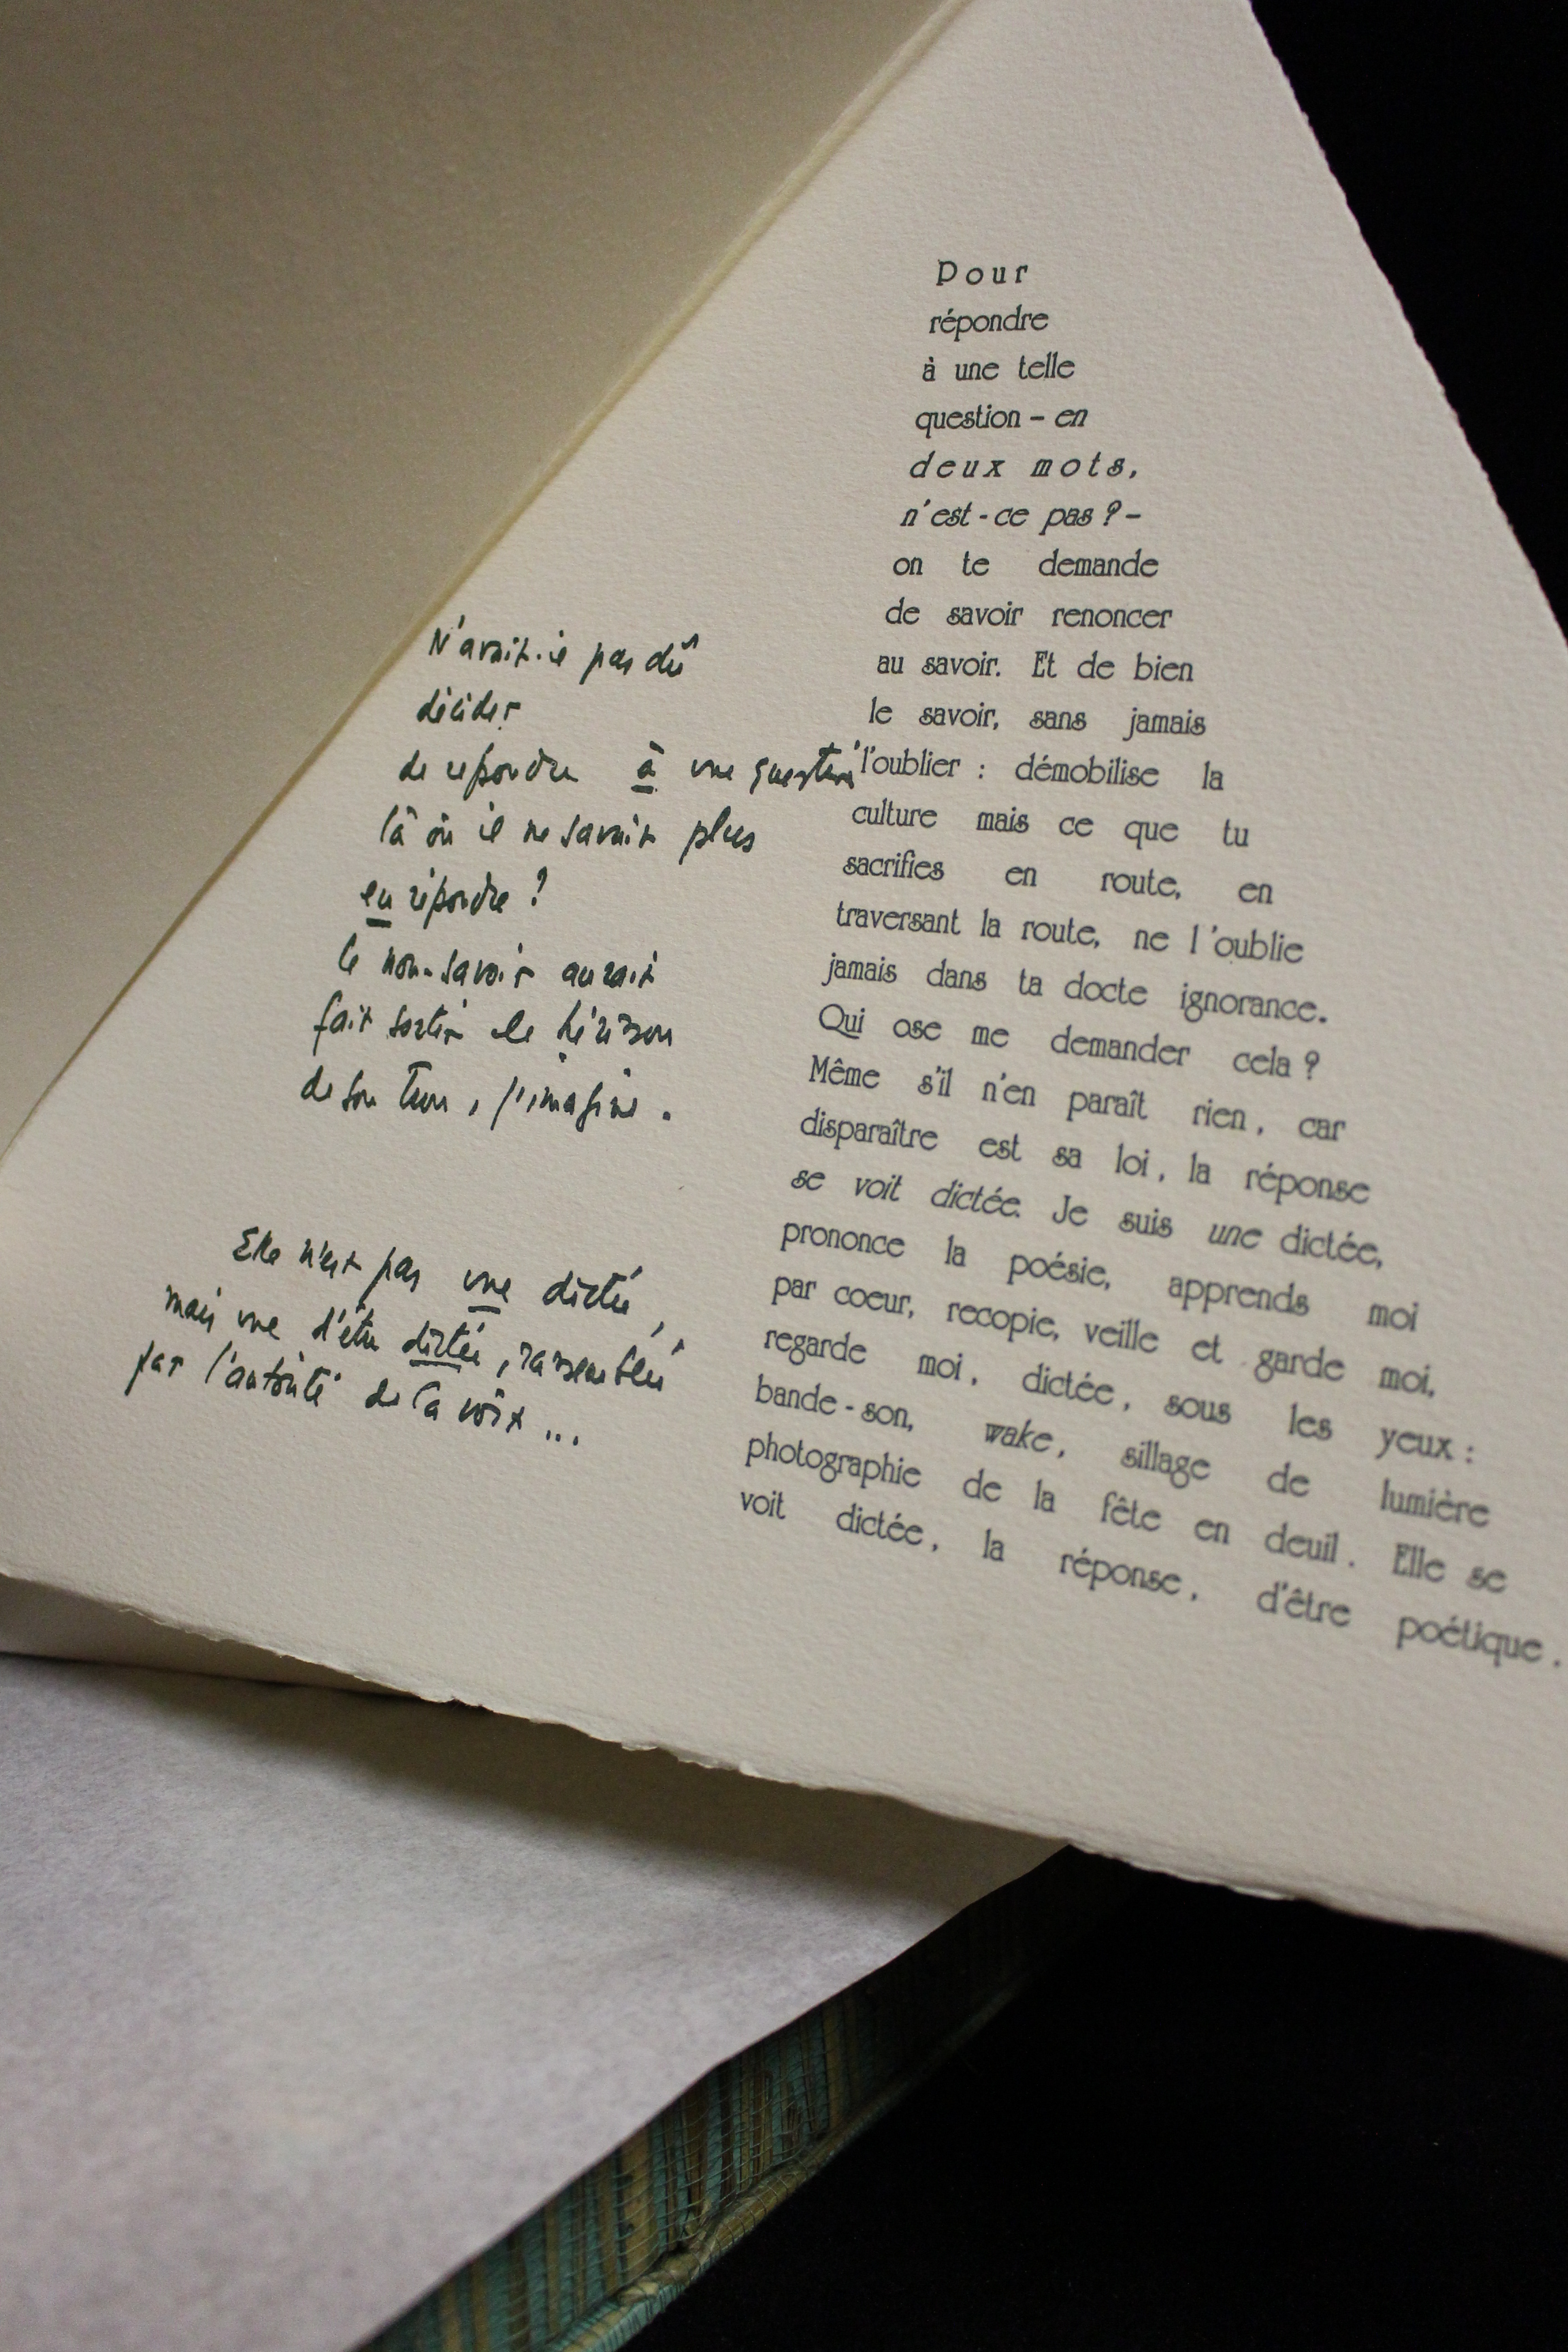 Pour
répondre
à une telle
question – en
deux mots,
n'est-ce pas ? –
on te demande
de savoir renoncer
au savoir. Et de bien
le savoir, sans jamais
l'oublier : démobilise la
culture mais ce que tu
sacrifies en route, en
traversant la route, ne l'oublie
jamais dans ta docte ignorance.
Qui ose me demander cela ?
Même s'il n'en paraît rien, car
disparaître est sa loi, la réponse
se voit dictée. Je suis une dictée,
prononce la poésie, apprends moi
par coeur, recopie, veille et garde moi,
regarde moi, dictée, sous les yeux :
bande-son, wake, sillage de lumière
photographie de la fête en deuil. Elle se
voit dictée, la réponse, d'être poétique.
N'avait-il pas dû
décider
de répondre à une question
là où il ne savait plus
en répondre ?
le non-savoir aurait
fait sortir le hérisson
de son trou, j'imagine.
Elle n'est pas une dictée,
mais une d'être dictée, rassemblée
par l'autorité de la voix...